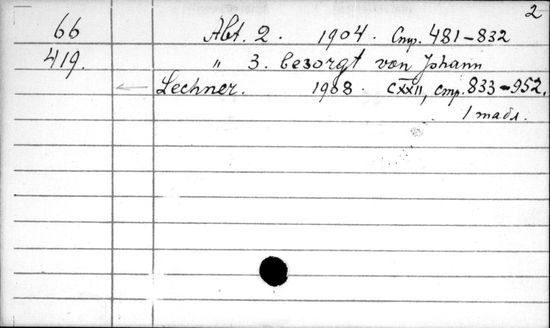 2
66 Abt. 2. 1904. Стр. 481-832
419. " 3. besorgt von Johann
Lechner. 1908. CXXII, стр. 833-952.
1 табл.